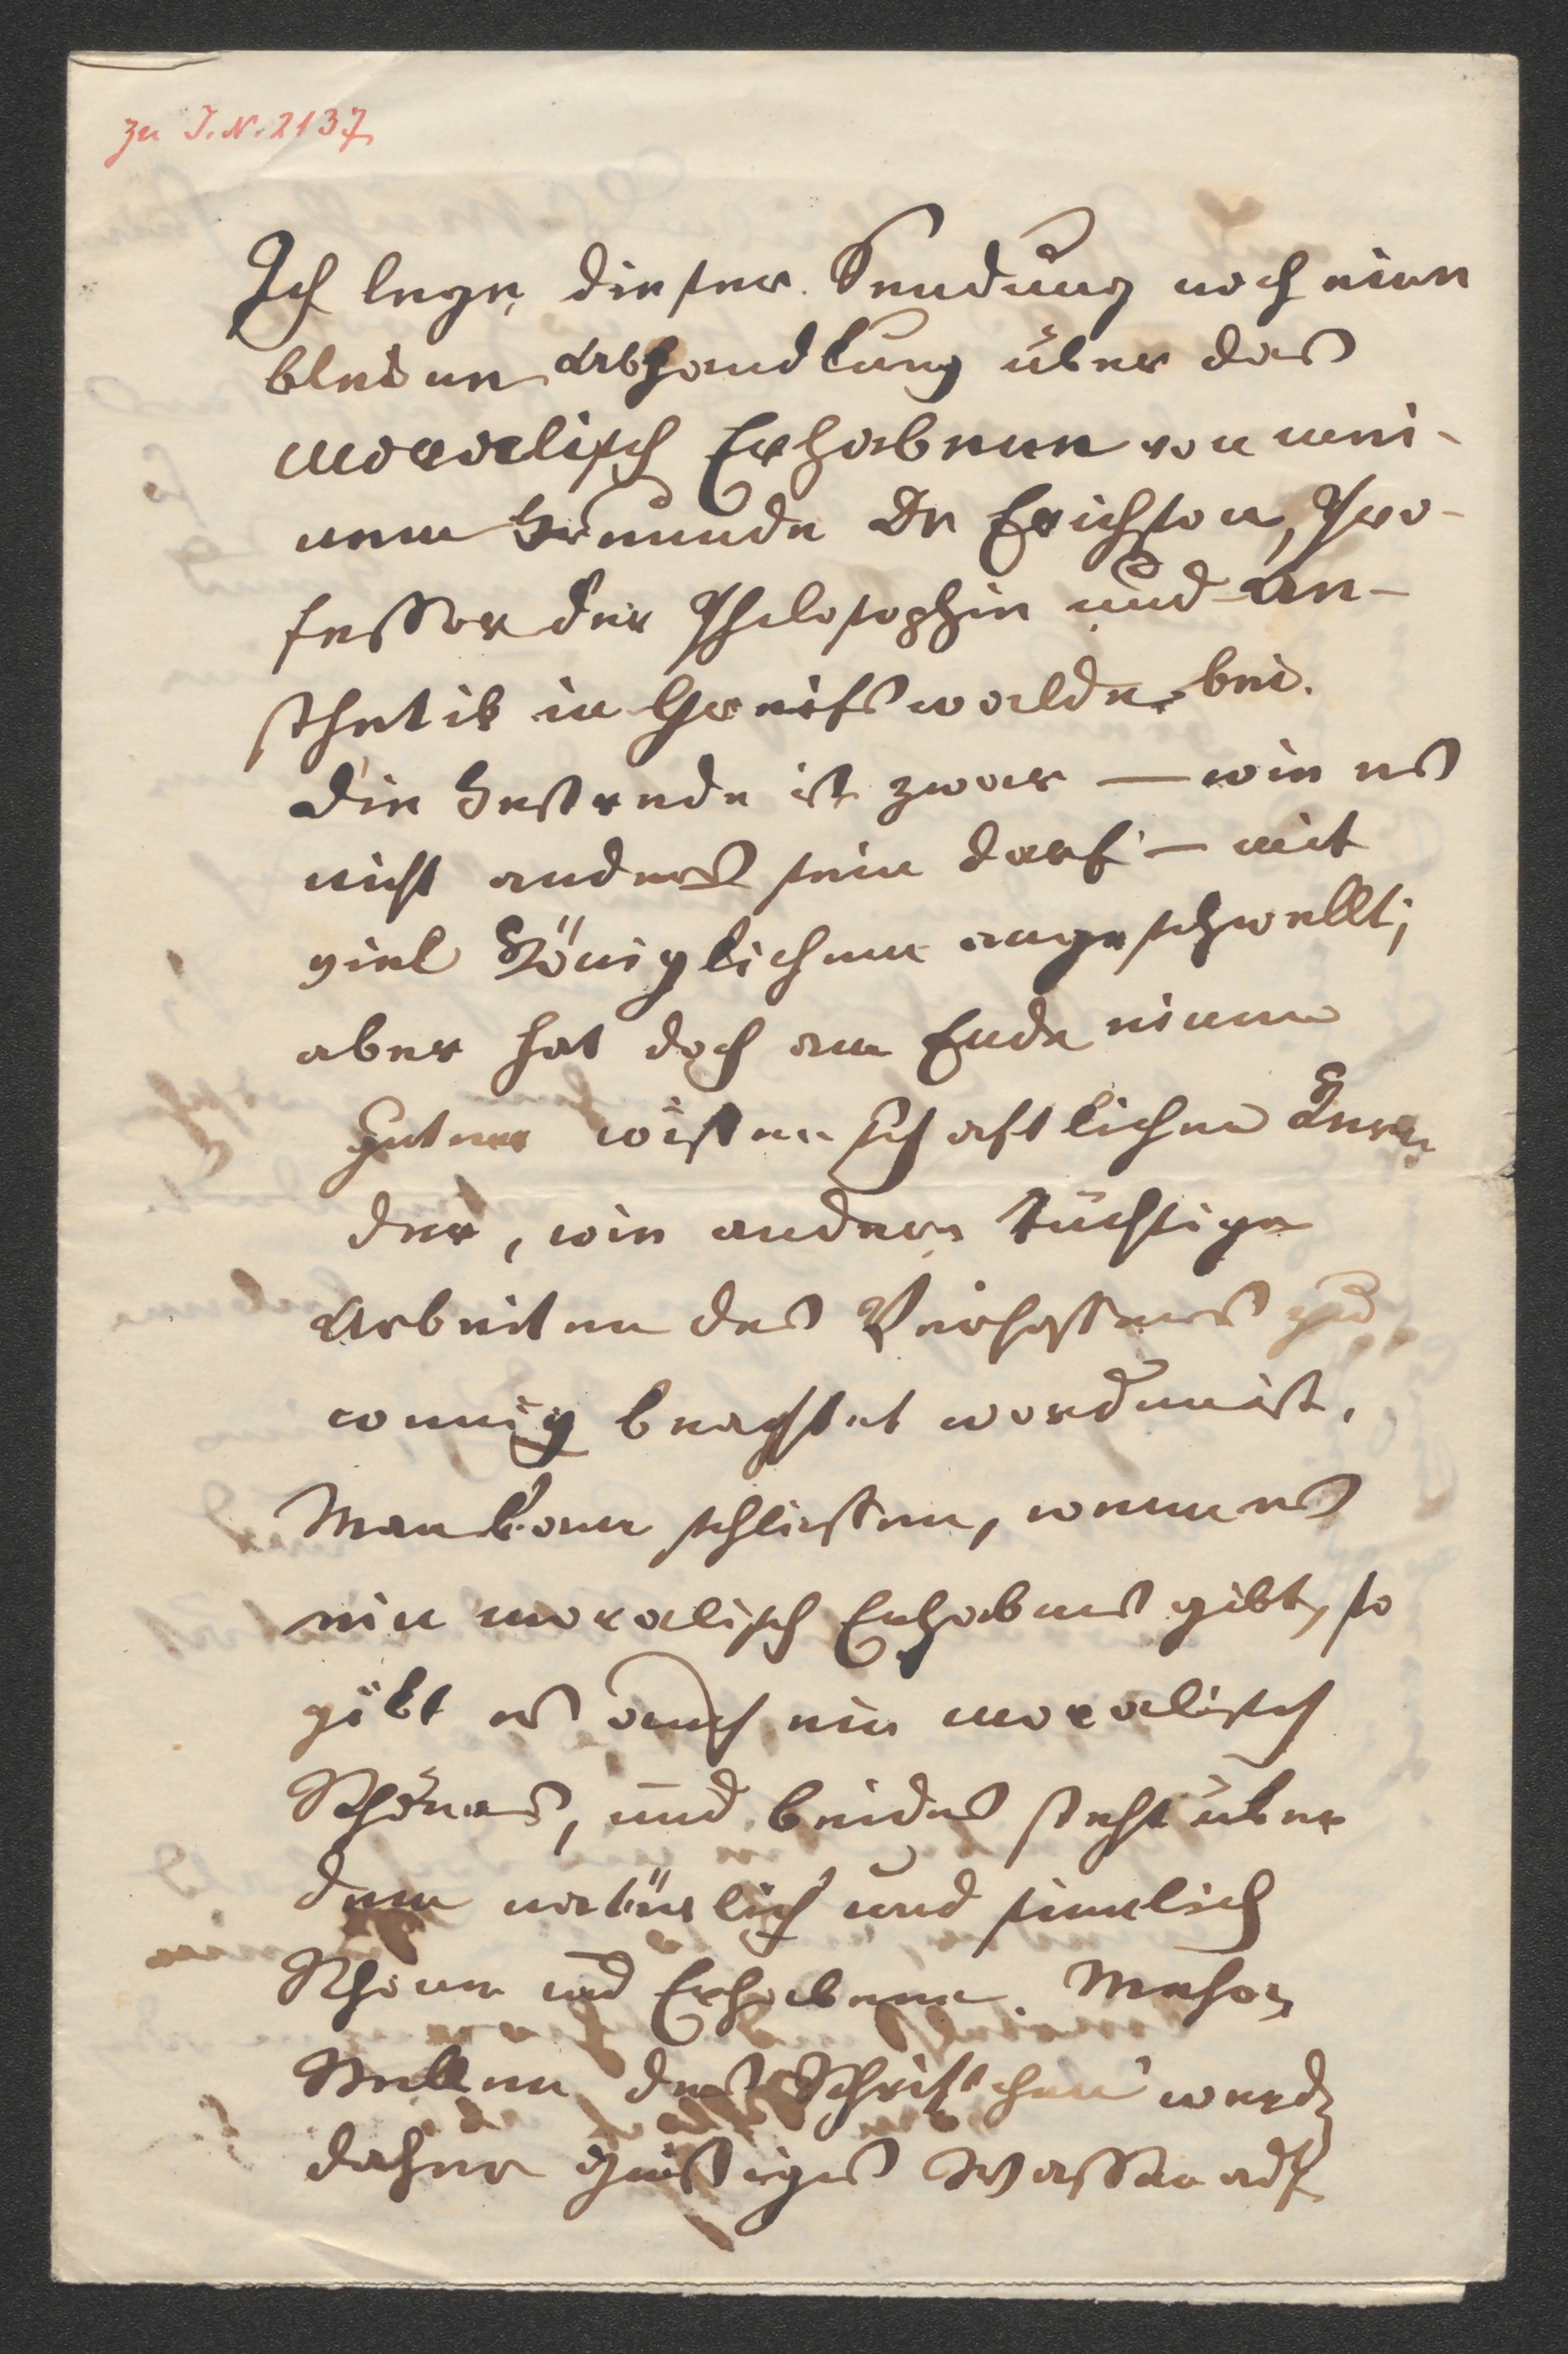 zu I.N. 2137
Ich lege dieser Sendung noch eine
kleine Abhandlung über das
moralisch Erhabene von mei-
nem Freunde Dr Erichson, Pro-
fessor der Philosophie und Ae-
sthetik in Greifswalde, bei.
Die Festrede ist zwar — wie es
nicht anders sein darf — mit
viel Königlichem angeschwellt;
aber hat doch am Ende einen
guten wissenschaftlichen
der, wie andere tüchtige
Arbeiten des Verfassers zu
wenig beachtet worden ist.
Man kann schließen, wenn es
ein moralisch Erhabenes gibt, so
gibt es auch ein moralisch
Schönes, und beides steht über
dem natürlich und sinnlich
Schönen und Erhabenen. Mehre
Stellen des Schriftchens werden
daher geistiges Wasser auf